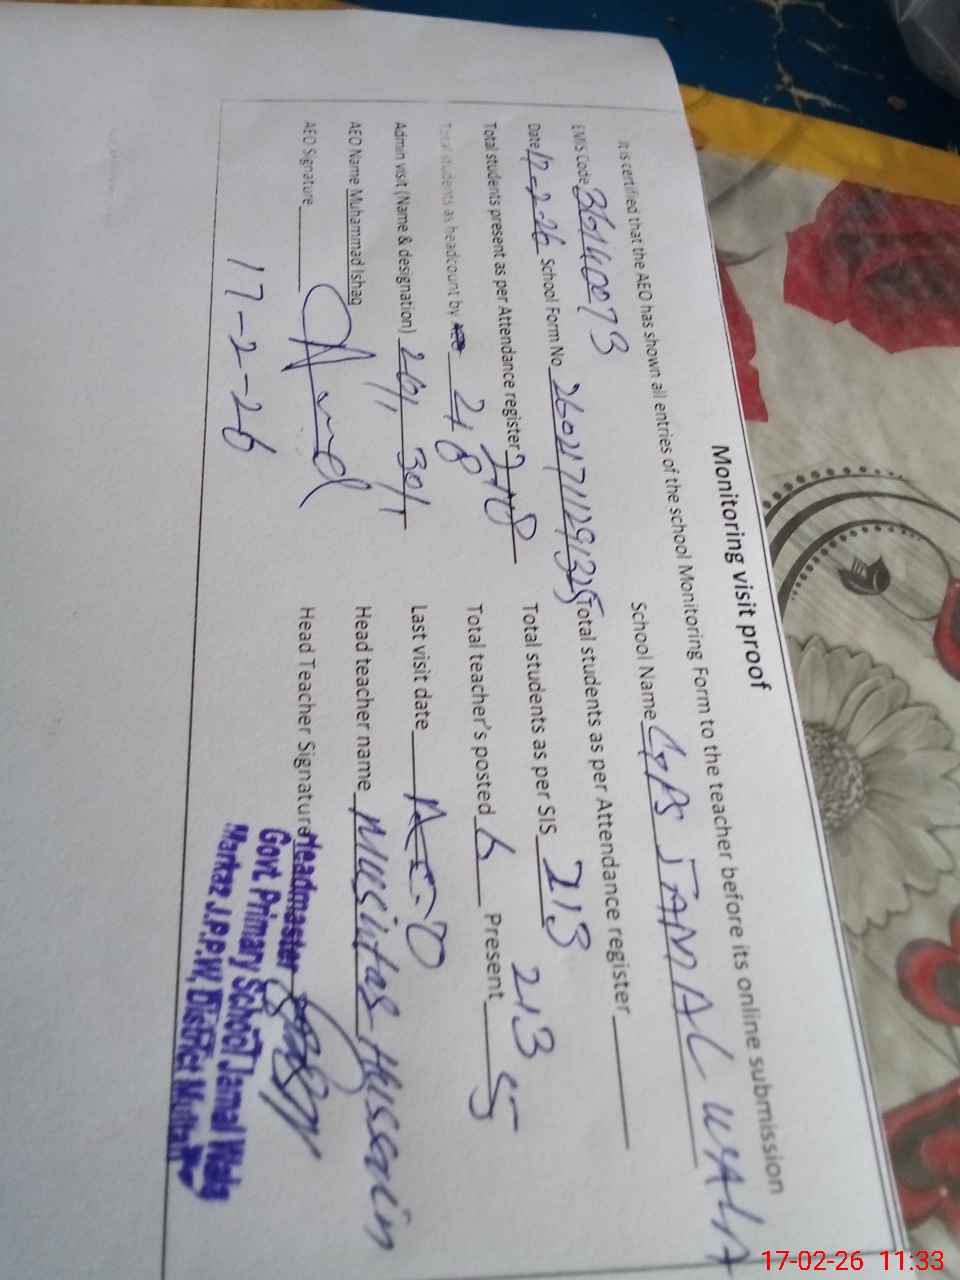 Monitoring visit proof
It is certified that the AEO has shown all entries of the school Monitoring Form to the teacher before its online submission
EMIS Code 36140073 School Name GPS JAMAL WALA
Date 17-2-26 School Form No 26021711291325 Total students as per Attendance register 213
Total students present as per Attendance register Total students as per SIS 213
Total students as headcount by 218 Total teacher's posted 6 Present 5
Admin visit (Name & designation) Last visit date
AEO Name Muhammad Ishaq Head teacher name Hussain
AEO Signature Head Teacher Signature
17-2-26
Headmaster
Govt. Primary School Jamal Wala
Markaz J.P.P.W, District Multan
17-02-26 11:33